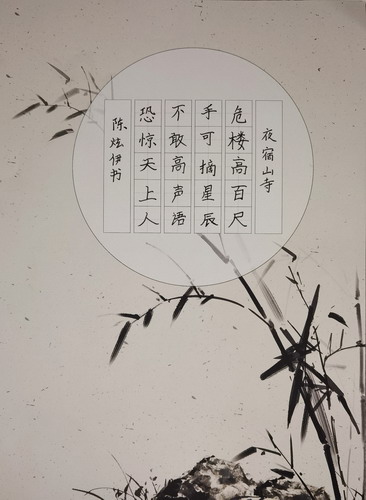 夜宿山寺
危楼高百尺
手可摘星辰
不敢高声语
恐惊天上人
陈炫伊书